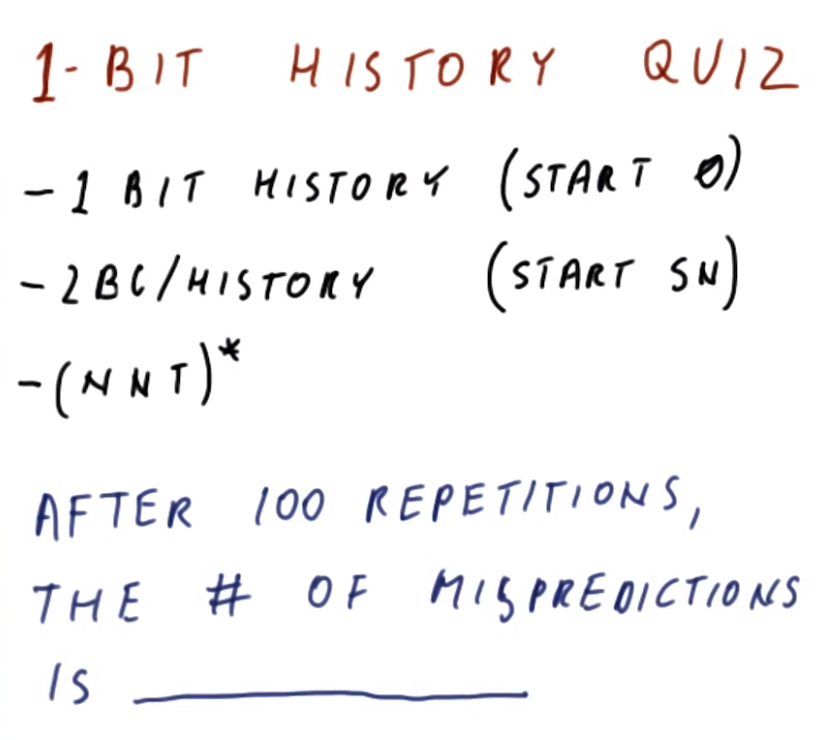 1-BIT HISTORY QUIZ
- 1 BIT HISTORY (START 0)
- 2BC/HISTORY (START SN)
- (NNT)*
AFTER 100 REPETITIONS,
THE # OF MISPREDICTIONS
IS